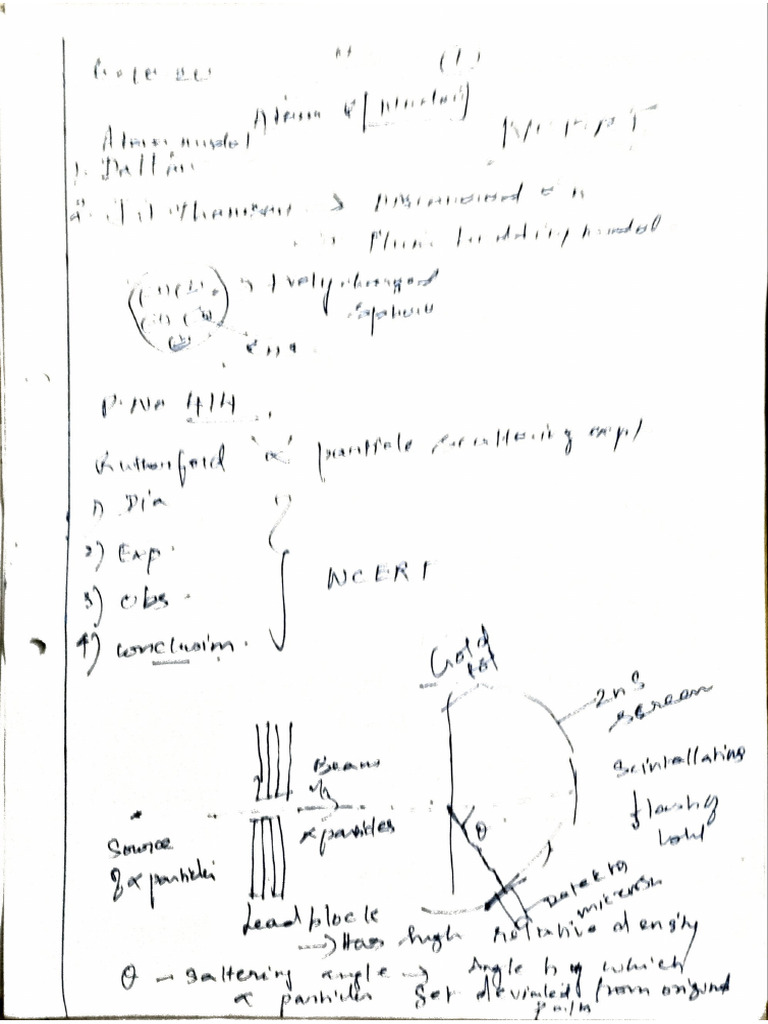 (1)
Atom & [Nuclei]
Atom model
1. Dalton
2. J J Thomson →
Plum pudding model
→ +vely charged
sphere
P. No 414
Rutherford 'α' particle scattering expt
1) Dia
2) Exp.
3) Obs.
4) Conclusion.
NCERT
Gold
ZnS
screen
Beam
of
α particles
Scintillating
flashing
Source
of α particles
Lead block
Detector
→ Has high relative density
θ → Scattering angle → Angle by which
α particles get deviated from original